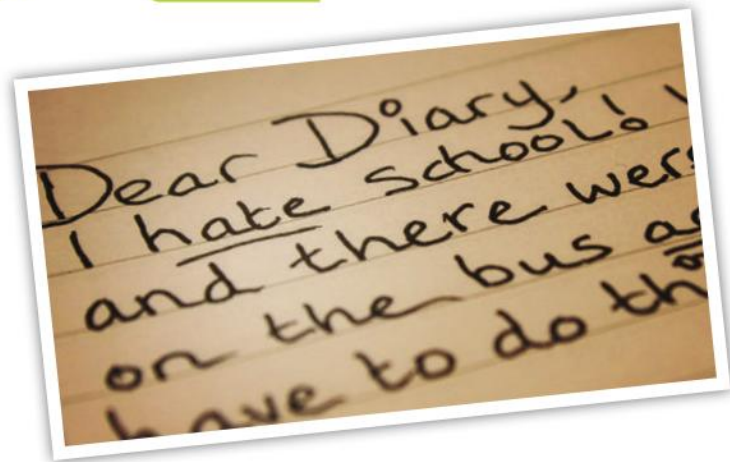 Dear Diary,
I hate school!
and there were
on the bus
have to do